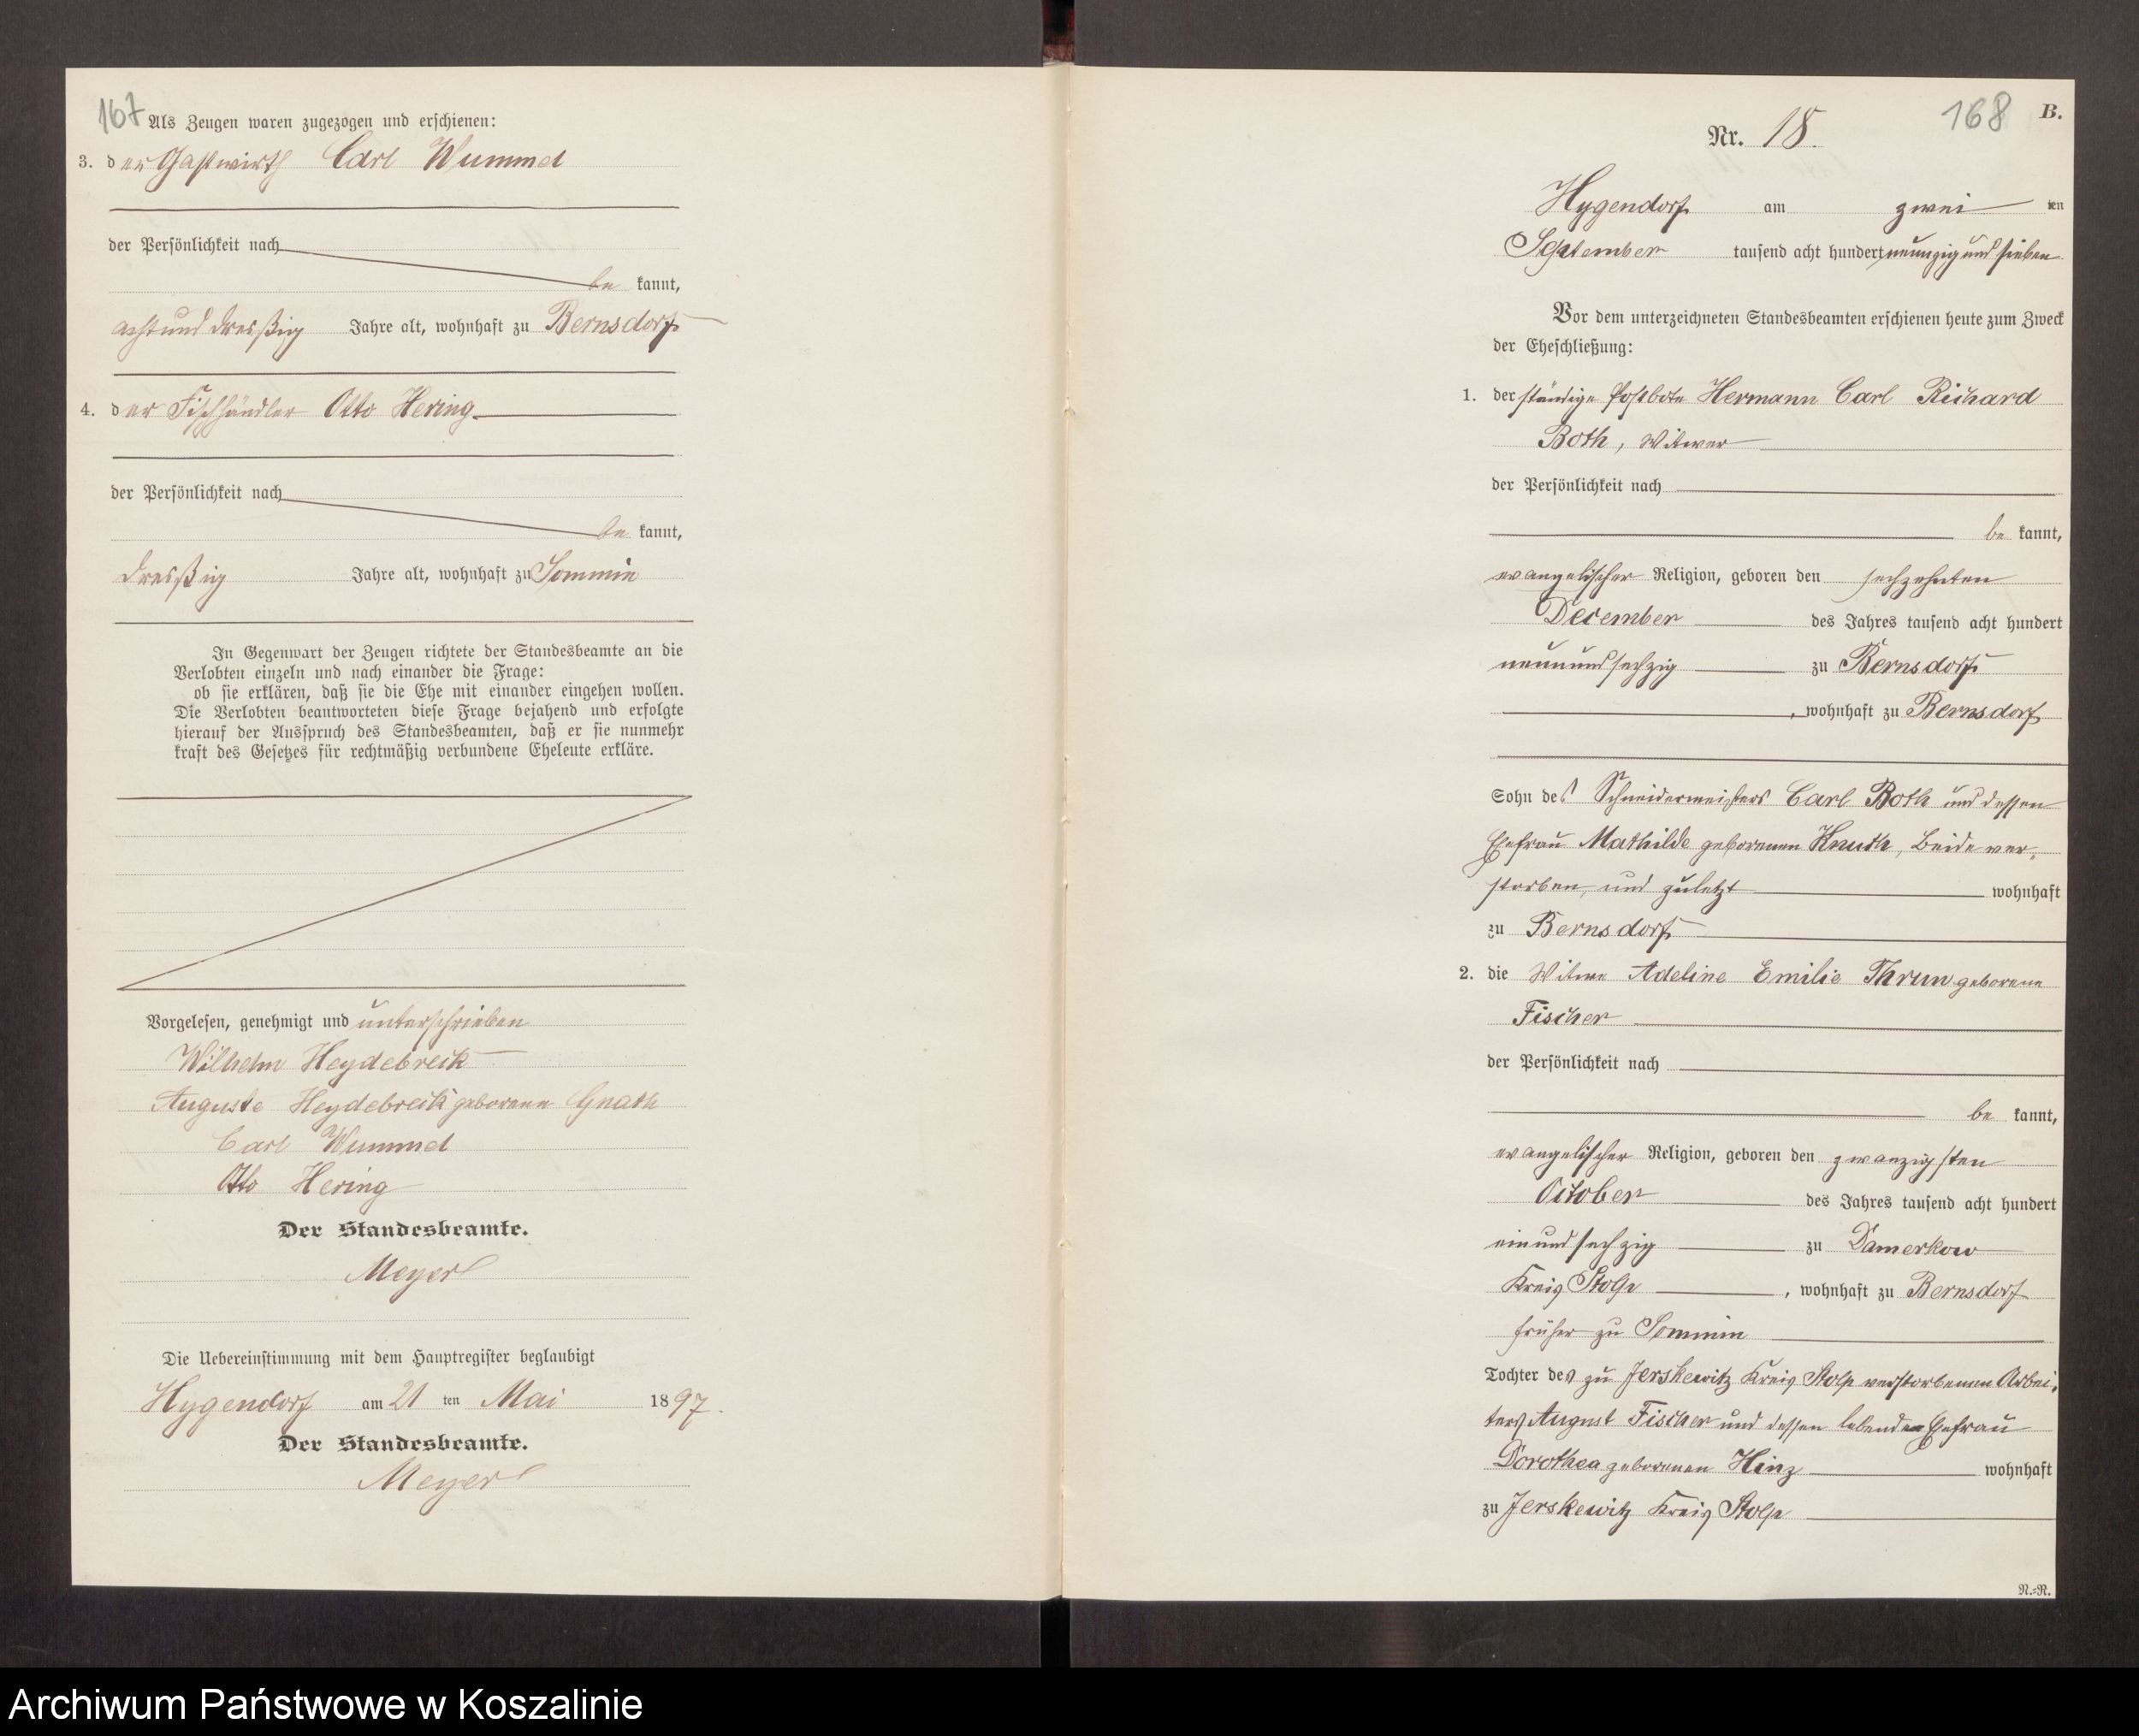 167
Als Zeugen waren zugezogen und erschienen:
3. der Gastwirth Carl Wummel
der Persönlichkeit nach
be kannt,
acht und dreißig Jahre alt, wohnhaft zu Bernsdorf
4. der Fischhändler Otto Hering
der Persönlichkeit nach
be kannt,
dreißig Jahre alt, wohnhaft zu Sommin
In Gegenwart der Zeugen richtete der Standesbeamte an die
Verlobten einzeln und nach einander die Frage:
ob sie erklären, daß sie die Ehe mit einander eingehen wollen.
Die Verlobten beantworteten diese Frage bejahend und erfolgte
hierauf der Ausspruch des Standesbeamten, daß er sie nunmehr
kraft des Gesetzes für rechtmäßig verbundene Eheleute erkläre.
Vorgelesen, genehmigt und unterschrieben
Wilhelm Heydebreck
Auguste Heydebreck geborene Gnath
Carl Wummel
Otto Hering
Der Standesbeamte.
Meyer
Die Uebereinstimmung mit dem Hauptregister beglaubigt
Hygendorf am 21 ten Mai 1897.
Der Standesbeamte.
Meyer
168 B.
Nr. 18.
Hygendorf am zwei ten
September tausend acht hundert neunzig und sieben
Vor dem unterzeichneten Standesbeamten erschienen heute zum Zweck
der Eheschließung:
1. der ständige Postbote Hermann Carl Richard
Both, Witwer
der Persönlichkeit nach
be kannt,
evangelischer Religion, geboren den sechzehnten
December des Jahres tausend acht hundert
neunundsechzig zu Bernsdorf
, wohnhaft zu Bernsdorf
Sohn des Schneidermeisters Carl Both und dessen
Ehefrau Mathilde geborenen Knuth, beide ver-
storben, und zuletzt wohnhaft
zu Bernsdorf
2. die Witwe Adeline Emilie Thrun geborene
Fischer
der Persönlichkeit nach
be kannt,
evangelischer Religion, geboren den zwanzigsten
October des Jahres tausend acht hundert
einundsechzig zu Damerkow
Kreis Stolp, wohnhaft zu Bernsdorf
früher zu Sommin
Tochter des zu Jerskewitz Kreis Stolp verstorbenen Arbei-
ters August Fischer und dessen lebenden Ehefrau
Dorothea geborenen Hinz wohnhaft
zu Jerskewitz Kreis Stolp
N.-R.
Archiwum Państwowe w Koszalinie